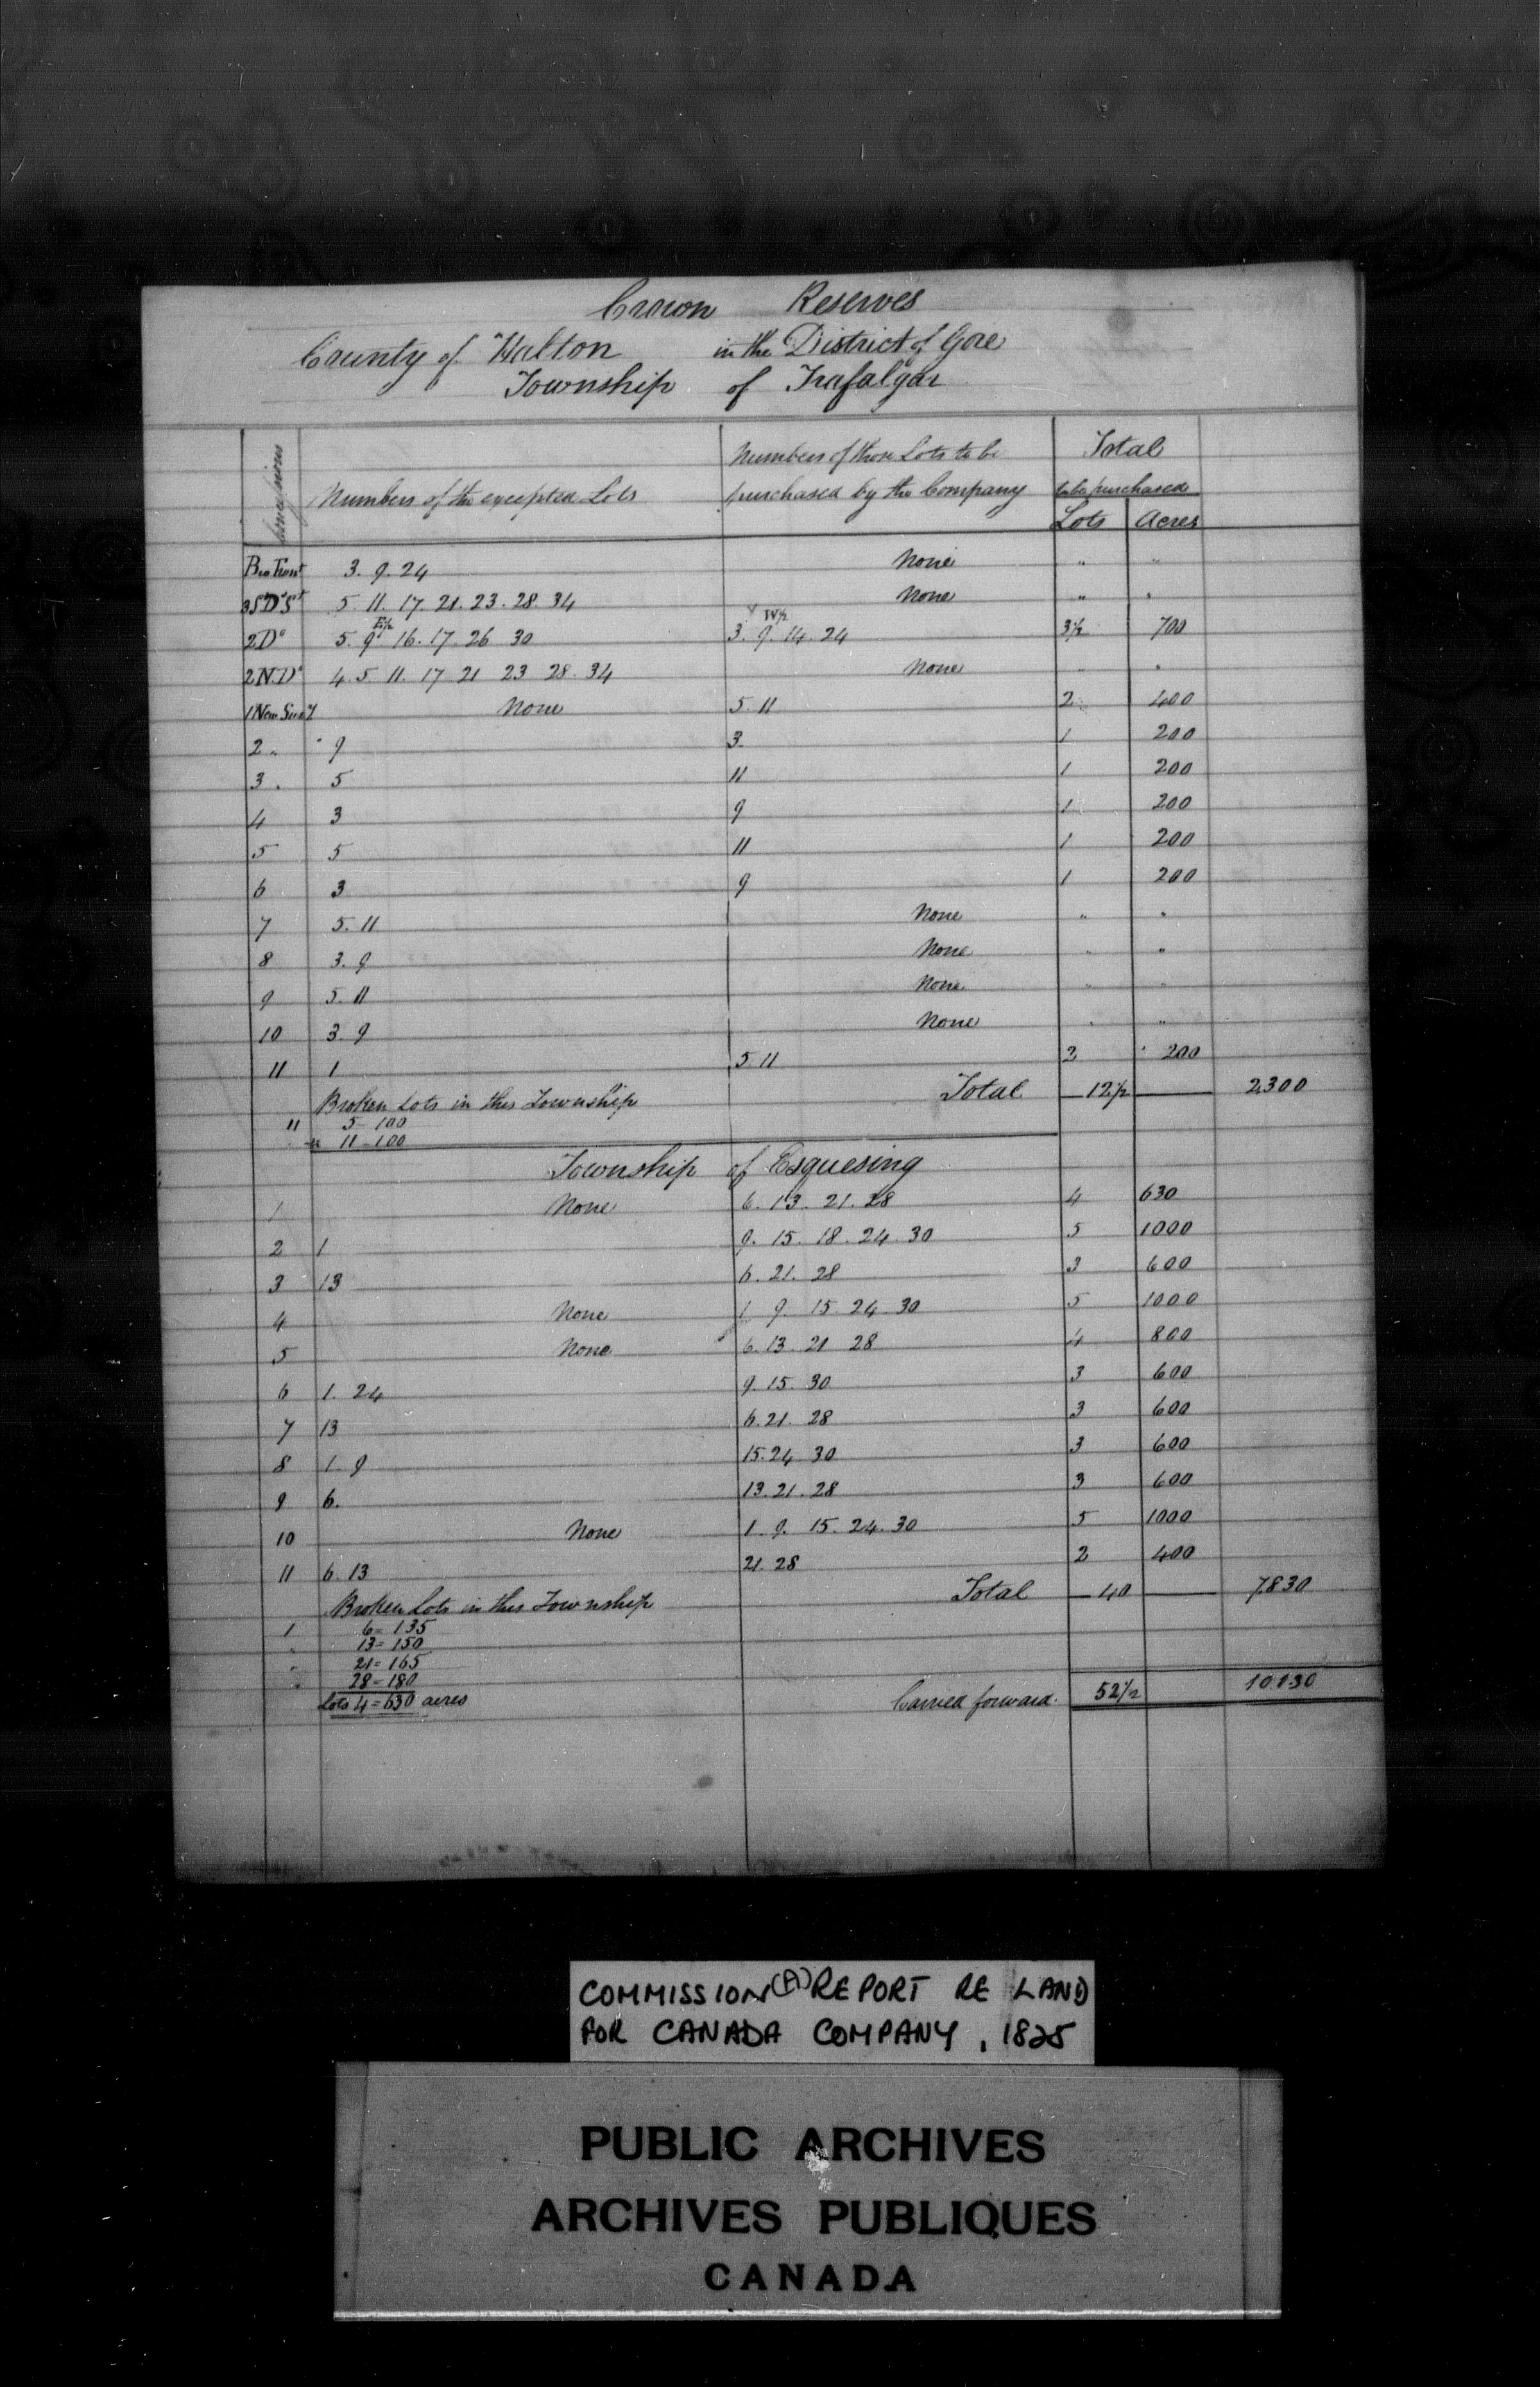 Crown Reserves
County of Halton in the District of Gore
Township of Trafalgar
Concessions
Numbers of the excepted Lots
Numbers of those Lots to be purchased by the Company
Total
to be purchased
Lots Acres
Bro Front 3. 9. 24 None " "
3 S Dˢ Sᵗ 5. 11. 17. 21. 23. 28. 34 None " "
2 Dº 5. 9 E½. 16. 17. 26 30 3. 9 W½. 14. 24 3½ 700
2 N. Dº 4. 5 11. 17 21 23 28. 34 None " "
1 New Survy None 5. 11 2 400
2 " 9 3. 1 200
3 . 5 11 1 200
4 3 9 1 200
5 5 11 1 200
6 3 9 1 200
7 5. 11 None " "
8 3. 9 None " "
9 5. 11 None " "
10 3 9 None " "
11 1 5 11 2 200
Total 12½ 2300
Broken Lots in this Township
11 5 - 100
" 11 - 100
Township of Esquesing
1 None 6. 13. 21. 28 4 630
2 1 9. 15. 18. 24. 30 5 1000
3 13 6. 21. 28 3 600
4 None 1 9. 15 24 30 5 1000
5 None 6. 13. 21 28 4 800
6 1. 24 9. 15. 30 3 600
7 13 6. 21. 28 3 600
8 1. 9 15. 24 30 3 600
9 6. 13. 21. 28 3 600
10 None 1. 9. 15. 24. 30 5 1000
11 6. 13 21. 28 2 400
Total 40 7830
Broken Lots in this Township
1 6 = 135
" 13 = 150
" 21 = 165
" 28 = 180
Lots 4 = 630 acres
Carried forward. 52½ 10130
COMMISSION (A) REPORT RE LAND
FOR CANADA COMPANY, 1825
PUBLIC ARCHIVES
ARCHIVES PUBLIQUES
CANADA